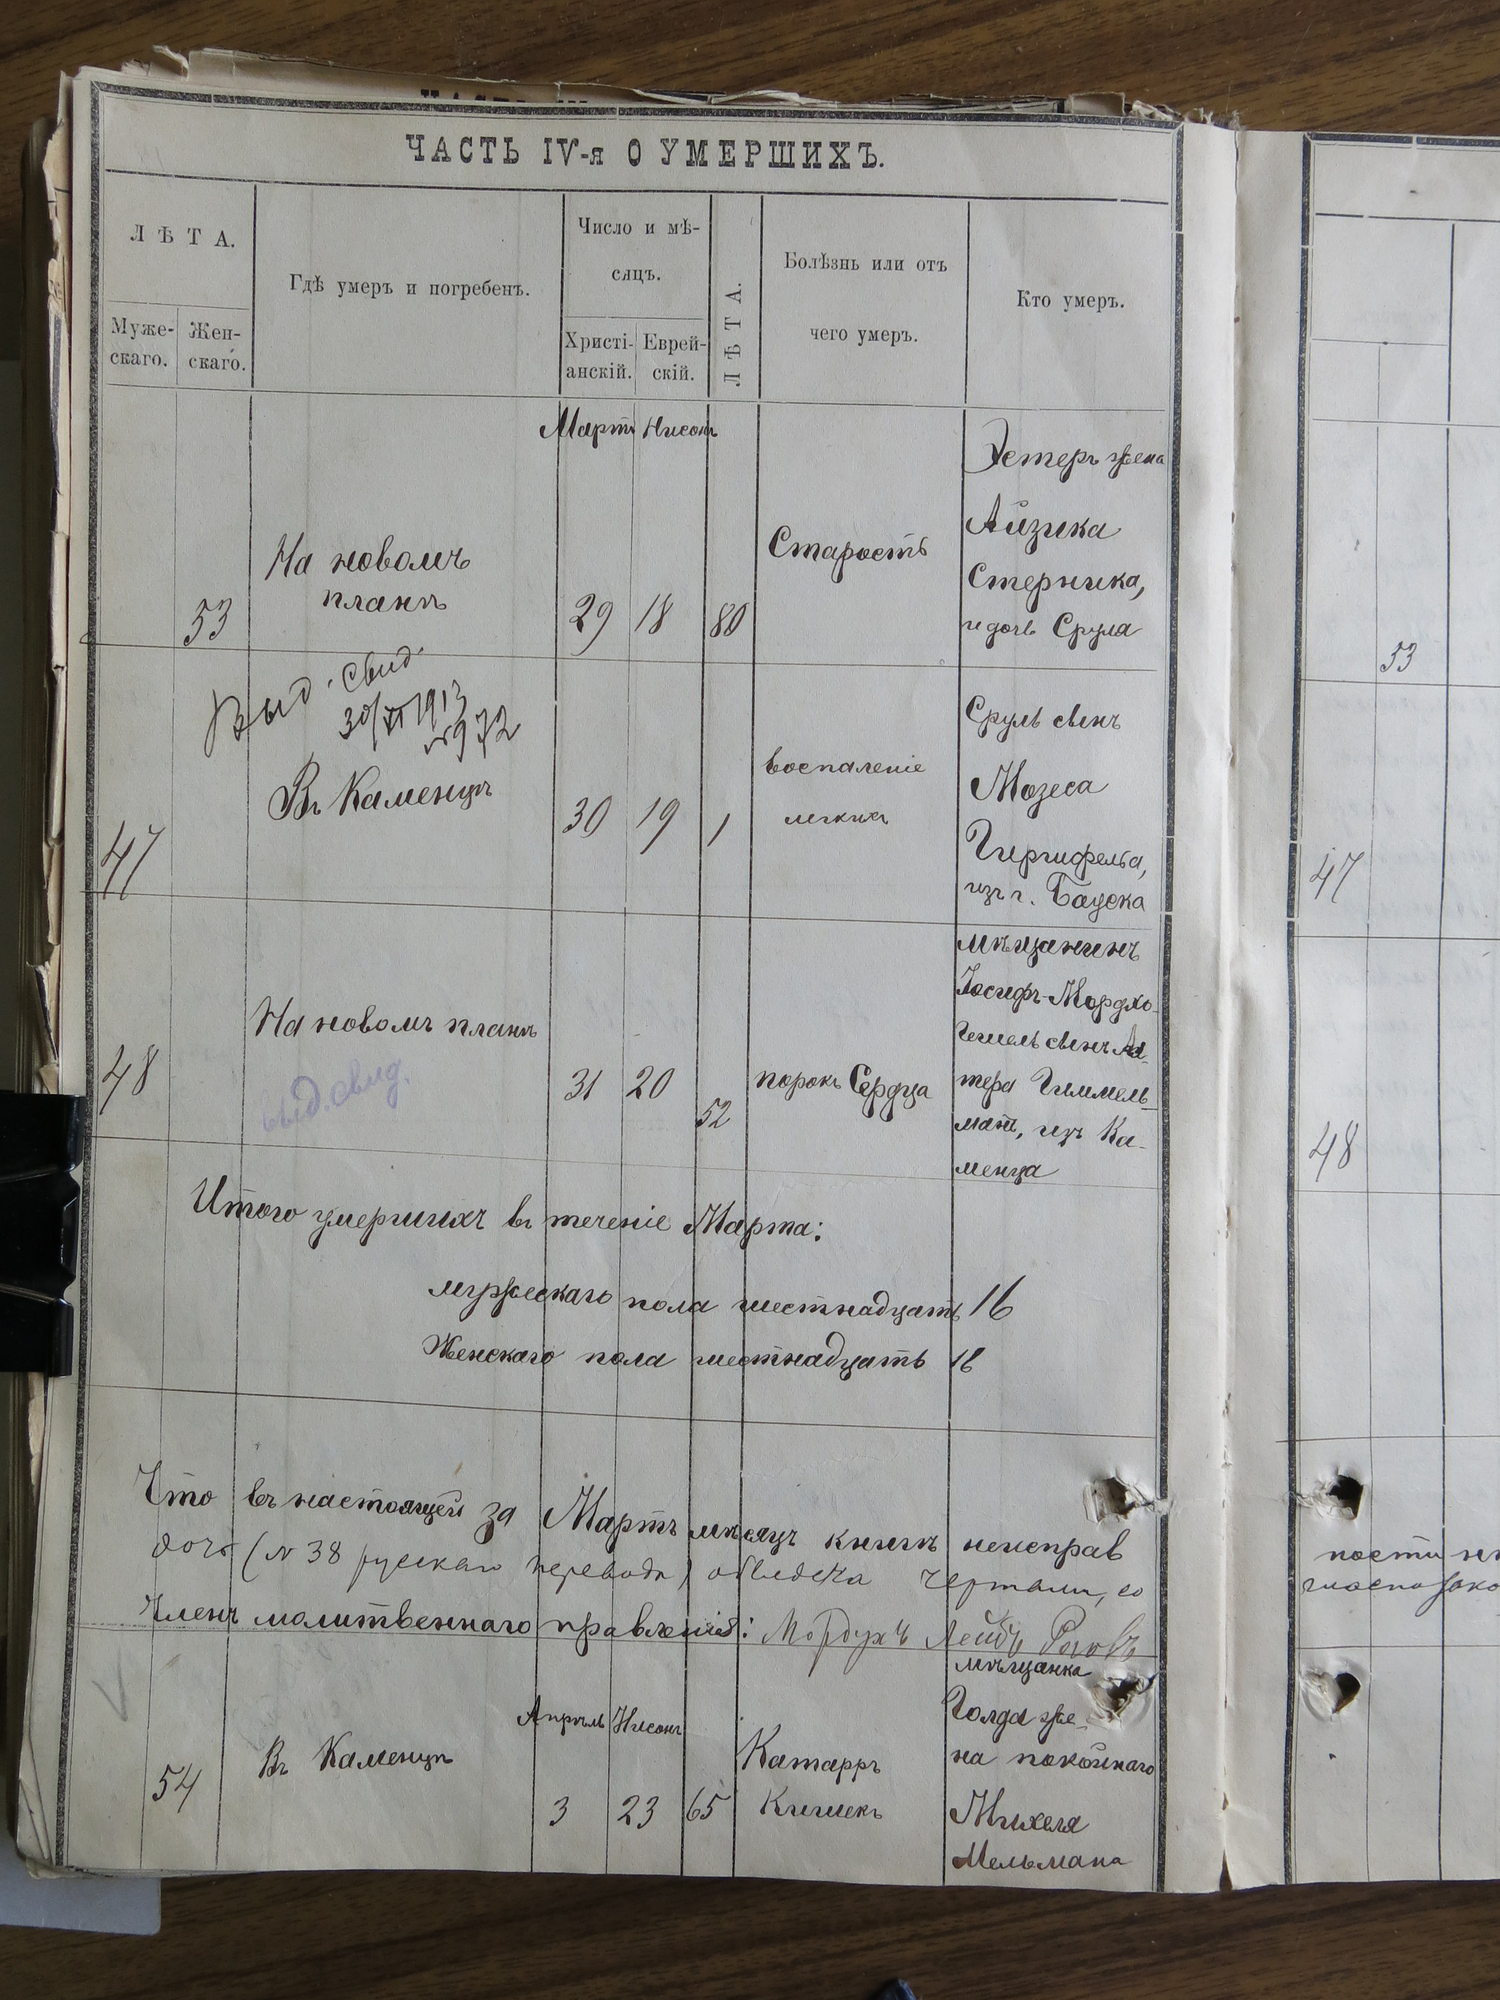 ЧАСТЬ IV-я О УМЕРШИХЪ.
Л Ѣ Т А.
Муже-
скаго.
Жен-
скаго.
Гдѣ умеръ и погребенъ.
Число и мѣ-
сяцъ.
Христі-
анскій.
Еврей-
скій.
Л Ѣ Т А.
Болѣзнь или отъ
чего умеръ.
Кто умеръ.
Мартъ Нисонъ
53
На новомъ
планѣ
29 18 80
Старость
Эстеръ жена
Айзика
Стерника,
и дочь Сруля
53
Выд. свид.
30/XI 1913
№ 972
47
Въ Каменцѣ
30 19 1
воспаленіе
легкихъ
Сруль сынъ
Мозеса
из г. Бауска
47
48
На новомъ планѣ
выд. свид.
31 20
52
порокъ Сердца
мѣщанинъ
Іосифъ-Мордхо
сынъ Ал-
тера Гиммель-
матъ, изъ Ка-
менца
48
Итого умершихъ въ теченіе Марта:
мужескаго пола шестнадцать 16
Женскаго пола шестнадцать 16
Что въ настоящей за Мартъ мѣсяцъ книгѣ неисправ
(№ 38 русскаго перевода) обведена чертами, со
Членъ молитвеннаго правленія: Мордухъ Лейбъ
Апрѣль Нисонъ
54
Въ Каменцѣ
3 23 65
Катарръ
Кишекъ
мѣщанка
Голда же-
на покойнаго
Михеля
Мельмана